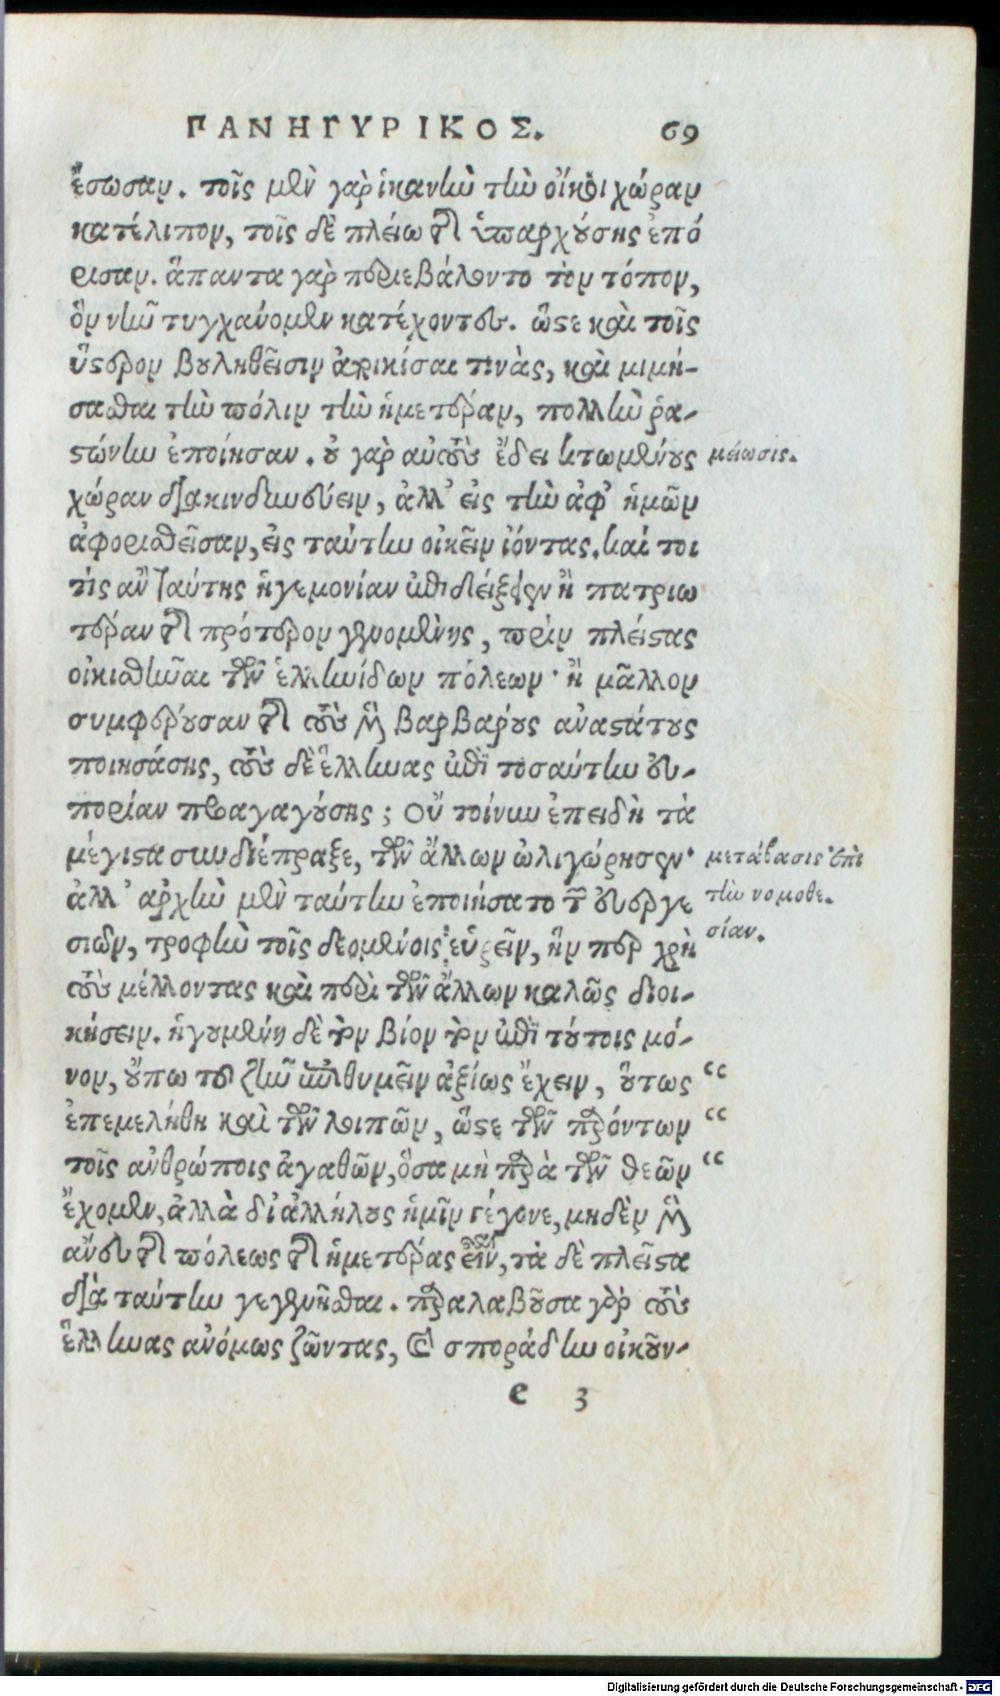 ΠΑΝΗΓΥΡΙΚΟΣ. 69
ἔσωσαν. τοῖς μὲν γὰρ ἱκανὴν τὴν οἴκοι χώραν
κατέλιπον, τοῖς δὲ πλείω τῆς ὑπαρχούσης ἐπό
ρισαν. ἅπαντα γὰρ περιεβάλοντο τὸν τόπον,
ὃν νῦν τυγχάνομεν κατέχοντες. ὥστε καὶ τοῖς
ὕστερον βουληθεῖσιν ἀποικίσαι τινὰς, καὶ μιμή-
σασθαι τὴν πόλιν τὴν ἡμετέραν, πολλὴν ῥα-
στώνην ἐποίησαν. οὐ γὰρ αὐτοὺς ἔδει κτωμένους
μείωσις.
χώραν διακινδυνεύειν, ἀλλ' εἰς τὴν ἀφ' ἡμῶν
ἀφορισθεῖσαν, εἰς ταύτην οἰκεῖν ἰόντας. καί τοι
τίς ἂν ταύτης ἡγεμονίαν ἐπιδείξειεν ἢ πατριω
τέραν τῆς πρότερον γενομένης, πρὶν πλείστας
οἰκισθῆναι τῶν ἑλληνίδων πόλεων· ἢ μᾶλλον
συμφέρουσαν τῆς τοὺς μὲν βαρβάρους ἀναστάτους
ποιησάσης, τοὺς δὲ ἕλληνας ἐπὶ τοσαύτην εὐ-
πορίαν προαγαγούσης; Οὐ τοίνυν ἐπειδὴ τὰ
μέγιστα συνδιέπραξε, τῶν ἄλλων ὠλιγώρησεν·
μετάβασις ἐπὶ
τὴν νομοθε-
σίαν.
ἀλλ' ἀρχὴν μὲν ταύτην ἐποιήσατο τῶν εὐεργε
σιῶν, τροφὴν τοῖς δεομένοις εὑρεῖν, ἥν περ χρὴ
τοὺς μέλλοντας καὶ περὶ τῶν ἄλλων καλῶς διοι-
κήσειν. ἡγουμένη δὲ τὸν βίον τὸν ἐπὶ τούτοις μό-
νον, οὔπω τοῦ ζῆν ἐπιθυμεῖν ἀξίως ἔχειν, οὕτως “
ἐπεμελήθη καὶ τῶν λοιπῶν, ὥστε τῶν παρόντων “
τοῖς ἀνθρώποις ἀγαθῶν, ὅσα μὴ παρὰ τῶν θεῶν “
ἔχομεν, ἀλλὰ δι' ἀλλήλους ἡμῖν γέγονε, μηδὲν μὲν
ἄνευ τῆς πόλεως τῆς ἡμετέρας εἶναι, τὰ δὲ πλεῖστα
διὰ ταύτην γεγενῆσθαι. παραλαβοῦσα γὰρ τοὺς
ἕλληνας ἀνόμως ζῶντας, καὶ σποράδην οἰκοῦν-
e 3
Digitalisierung gefördert durch die Deutsche Forschungsgemeinschaft - DFG